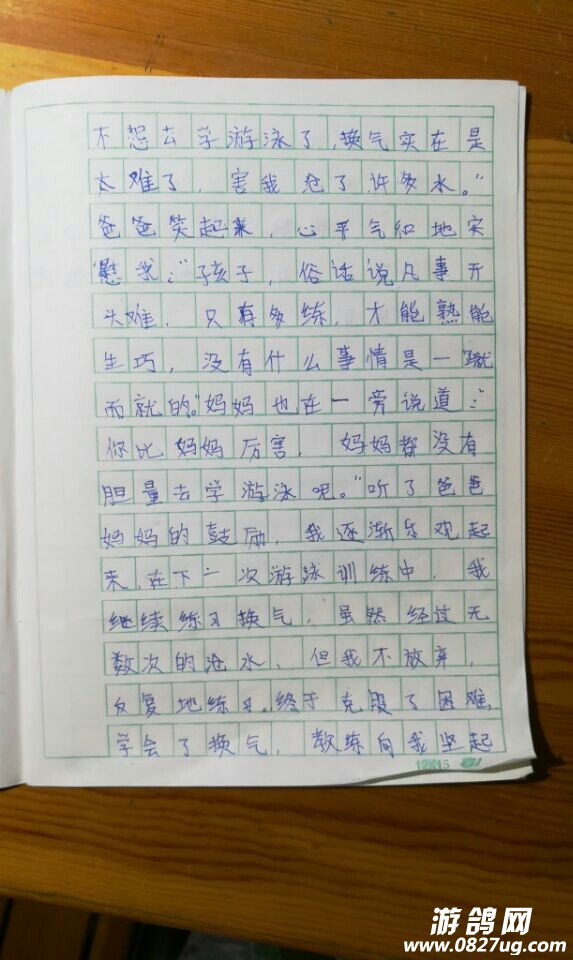 不想去学游泳了,换气实在是
太难了,害我沧了许多水。"
爸爸笑起来,心平气和地安
慰我:"孩子,俗话说凡事开
头难,只有多练,才能熟能
生巧,没有什么事情是一蹴
而就的。"妈妈也在一旁说道:"
你比妈妈厉害,妈妈都没有
胆量去学游泳呢。"听了爸爸
妈妈的鼓励,我逐渐乐观起
来,在下一次游泳训练中,我
继续练习换气,虽然经过无
数次的沧水,但我不放弃,
反复地练习。终于克服了困难,
学会了换气,教练向我竖起
游鸽网
www.0827ug.com